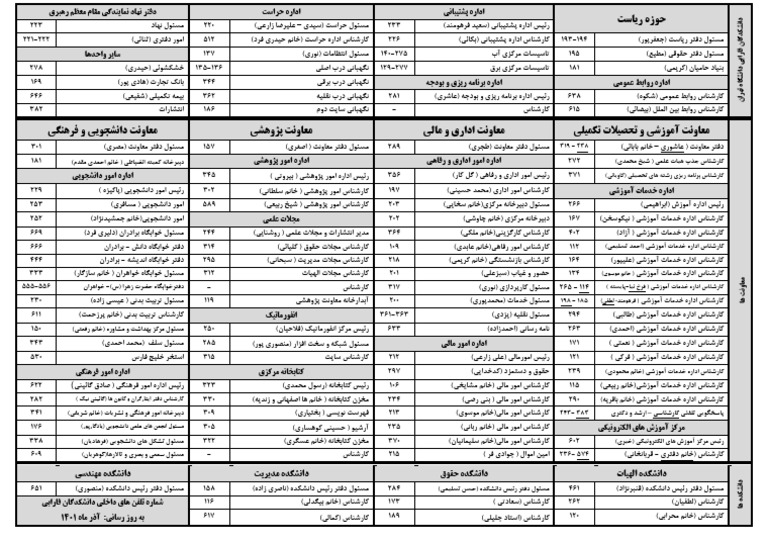 دانشکدگان فارابی دانشگاه تهران
حوزه ریاست
مسئول دفتر ریاست (جعفرپور) ۱۹۴-۱۹۳
مسئول دفتر حقوقی (مطیع) ۱۹۵
بنیاد حامیان (کریمی) ۱۸۱
اداره روابط عمومی
کارشناس روابط عمومی (شکوه) ۶۳۸
کارشناس روابط بین الملل (بیضائی) ۶۱۵
اداره پشتیبانی
رئیس اداره پشتیبانی (سعید فرهومند) ۲۳۳
کارشناس اداره پشتیبانی (یکائی) ۲۲۶
تاسیسات مرکزی آب ۲۷۵-۱۴۰
تاسیسات مرکزی برق ۲۷۷-۱۲۹
اداره برنامه ریزی و بودجه
رئیس برنامه ریزی و بودجه (عاشری) ۲۸۱
کارشناس -
اداره حراست
مسئول حراست (سیدی – علیرضا زارعی) ۲۲۰
کارشناس اداره حراست (خانم حیدری فرد) ۵۱۲
مسئول انتظامات (نوری) ۱۳۷
نگهبانی درب اصلی ۱۳۵-۱۳۶
نگهبانی درب برقی ۳۴۴
نگهبانی درب نقلیه ۳۶۲
نگهبانی سایت دوم ۱۸۶
دفتر نهاد نمایندگی مقام معظم رهبری
مسئول نهاد ۲۲۳
امور دفتری (ثنائی) ۲۲۲-۲۲۱
سایر واحدها
خشکشوئی (حیدری) ۲۷۸
بانک تجارت (هادی پور) ۱۶۹
بیمه تکمیلی (شفیعی) ۶۴۶
انتشارات ۳۸۲
معاونت ها
معاونت آموزشی و تحصیلات تکمیلی
دفتر معاونت (عاشوری – خانم بابائی) ۲۳۸ – ۳۱۹
کارشناس جذب هیات علمی (شیخ محمدی) ۲۷۲
کارشناس برنامه ریزی رشته های تحصیلی (کاویانی) ۳۷۱
اداره خدمات آموزشی
رئیس اداره آموزش (ابراهیمی) ۲۶۶
کارشناس اداره خدمات آموزشی (نیکوسخن) ۱۶۷
کارشناس اداره خدمات آموزشی (آزاد) ۴۰۲
کارشناس اداره خدمات آموزشی (احمد تسلیمی) ۱۱۲
کارشناس اداره خدمات آموزشی (علیپور) ۱۶۴
کارشناس اداره خدمات آموزشی (خانم موسوی) ۱۳۴
کارشناس اداره خدمات آموزشی ۱۱۴ – ۲۶۵
کارشناس اداره خدمات آموزشی (فرهومند-لطفی) ۱۸۵ – ۱۹۸
کارشناس اداره خدمات آموزشی (طالبی) ۲۹۴
کارشناس اداره خدمات آموزشی (احمدی) ۲۶۳
کارشناس اداره خدمات آموزشی (نعمتی) ۱۷۱
کارشناس اداره خدمات آموزشی (فرکی) ۱۲۱
کارشناس اداره خدمات آموزشی (خانم محمودی) ۲۳۹
کارشناس اداره خدمات آموزشی (خانم ربیعی) ۱۱۵
کارشناس اداره خدمات آموزشی (خانم باقریه) ۲۹۰
پاسخگویی تلفنی کارشناسی – ارشد و دکتری ۳۸۲ – ۲۴۳
مرکز آموزش های الکترونیکی
رئیس مرکز آموزش های الکترونیکی (خبری) ۶۰۲
کارشناس (خانم دفتری – قربانخانی) ۵۷۴ – ۲۳۶
معاونت اداری و مالی
مسئول دفتر معاونت (طجری) ۲۸۹
اداره امور اداری و رفاهی
رئیس امور اداری و رفاهی (گل کار) ۳۵۶
کارشناس امور اداری (محمد حسینی) ۱۹۷
مسئول دبیرخانه مرکزی (خانم سخایی) ۲۰۳
دبیرخانه مرکزی (خانم چاوشی) ۲۰۲
کارشناس کارگزینی (خانم ملکی) ۳۶۴
کارشناس امور رفاهی (خانم عابدی) ۱۰۹
کارشناس بازنشستگی (خانم کریمی) ۲۱۸
حضور و غیاب (سبزعلی) ۲۰۱
مسئول کارپردازی (نوری) ۳۱۷
مسئول خدمات (محمدپوری) ۲۰۰
مسئول نقلیه (یزدی) ۳۶۳-۳۶۱
نامه رسانی (احمدزاده) ۶۳۳
اداره امور مالی
رئیس امورمالی (علی زارعی) ۲۱۲
حقوق و دستمزد (کدخدایی) ۲۹۷
کارشناس امور مالی (خانم مشایخی) ۱۰۶
کارشناس امور مالی (بنی رضی) ۲۳۴
کارشناس امور مالی (خانم موسوی) ۲۱۳
کارشناس امور مالی (خانم ربانی) ۲۳۵
کارشناس امور مالی (خانم سلیمانیان) ۳۷۰
امین اموال (جوادی فر) ۲۱۵
معاونت پژوهشی
مسئول دفتر معاونت (اصغری) ۱۵۷
اداره امور پژوهشی
رئیس اداره امور پژوهشی (بیرونی) ۳۴۵
کارشناس امور پژوهشی (خانم سلطانی) ۳۰۲
کارشناس امور پژوهشی (شیخ ربیعی) ۵۸۹
مجلات علمی
مدیر انتشارات و مجلات علمی (روشنایی) ۲۴۴
کارشناس مجلات حقوق (گلیائی) ۳۱۴
کارشناس مجلات مدیریت (سبحانی) ۲۹۵
کارشناس مجلات الهیات ۳۱۲
آبدارخانه معاونت پژوهشی ۱۱۹
انفورماتیک
رئیس مرکز انفورماتیک (فلاحیان) ۲۵۰
مسئول شبکه و سخت افزار (منصوری پور) ۲۸۵
کارشناس سایت ۳۱۵
کتابخانه مرکزی
رئیس کتابخانه (رسول محمدی) ۳۲۳
مخزن کتابخانه (خانم ها اصفهانی و زندیه) ۳۳۰
فهرست نویسی (بختیاری) ۳۰۹
آرشیو (حسینی کوهساری) ۳۰۵
مخزن کتابخانه (خانم عسگری) ۳۲۲
معاونت دانشجویی و فرهنگی
مسئول دفتر معاونت (مصری) ۳۰۱
دبیرخانه کمیته انضباطی (خانم احمدی مقدم) ۱۸۱
اداره امور دانشجویی
رئیس امور دانشجویی (پاکیزه) ۲۲۹
امور دانشجویی (مسافری) ۲۵۳
امور دانشجویی (خانم جمشیدنژاد) ۲۵۲
مسئول خوابگاه برادران (دلیری فرد) ۶۶۹
دفتر خوابگاه دانش – برادران ۶۶۶
دفتر خوابگاه اندیشه – برادران ۴۴۴
مسئول خوابگاه خواهران (خانم سازگار) ۳۳۳
دفترخوابگاه حضرت زهرا(س)– خواهران ۵۵۶-۵۵۵
مسئول تربیت بدنی (عیسی زاده) ۲۳۰
کارشناس تربیت بدنی (خانم پرزحمت) ۶۱۱
مسئول مرکز بهداشت و مشاوره (خانم رفعتی) ۱۵۰
مسئول سلف (محمد احمدی) ۳۴۳
استخر خلیج فارس ۵۳۰
اداره امور فرهنگی
رئیس اداره امور فرهنگی (صادق گائینی) ۶۲۲
کارشناس دفتر ایثارگران و کانون ها (گائینی نیک) ۲۸۲
دبیرخانه امور فرهنگی و نشریات (خانم شریفی) ۳۴۱
مسئول انجمن های علمی دانشجویی (یادگاری) ۱۷۶
مسئول تشکل های دانشجویی (فرهادیان) ۳۳۸
مسئول سمعی و بصری و تالارها(کوهریان) ۶۰۹
دانشکده ها
دانشکده الهیات
مسئول دفتر رئیس دانشکده (قنبرنژاد) ۴۶۱
کارشناس (لطفیان) ۲۶۲
کارشناس (خانم محرابی) ۱۲۰
دانشکده حقوق
مسئول دفتر رئیس دانشکده (حسن تسلیمی) ۲۸۴
کارشناس (سعادتی) ۱۷۳
کارشناس (استاد جلیلی) ۱۸۹
دانشکده مدیریت
مسئول دفتر رئیس دانشکده (ناصری زاده) ۱۵۸
کارشناس (خانم بیگدلی) ۱۱۶
کارشناس (کمالی) ۶۱۷
دانشکده مهندسی
مسئول دفتر رئیس دانشکده (منصوری) ۶۵۱
شماره تلفن های داخلی دانشکدگان فارابی
به روز رسانی: آذر ماه ۱۴۰۱